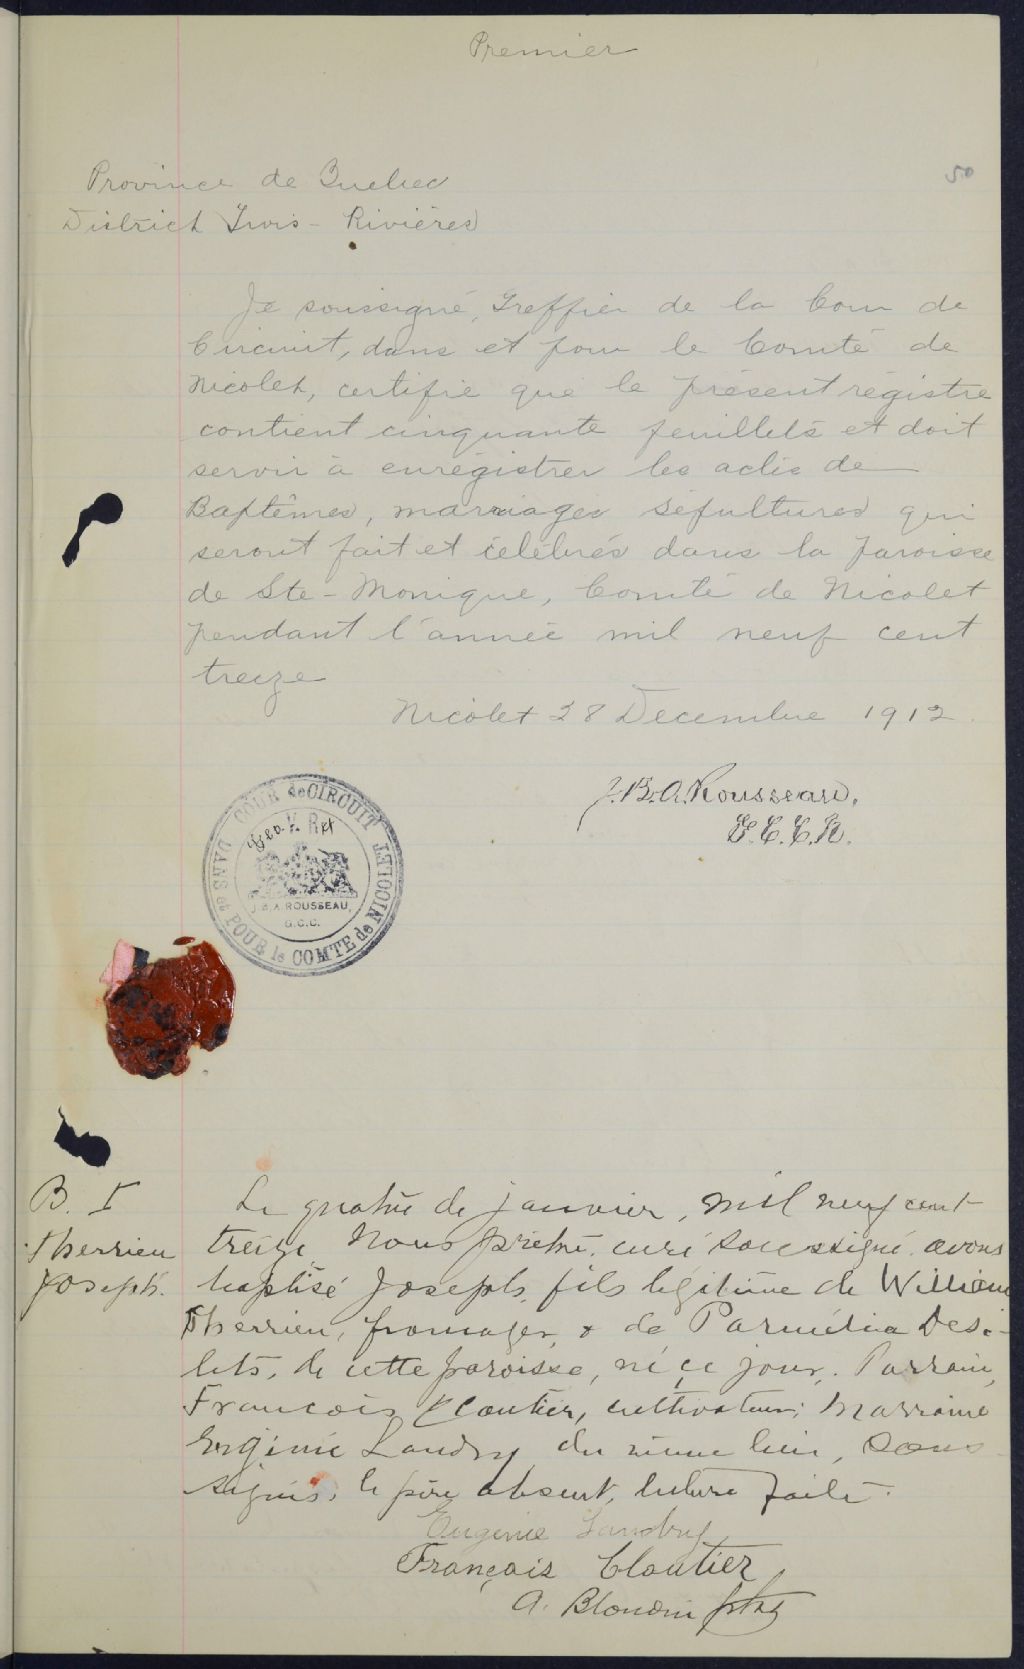 Premier
50
Province de Quebec
District Trois-Rivières
Je soussigné, Greffier de la Cour de
Circuit, dans et pour le Comté de
Nicolet, certifie que le présent régistre
contient cinquante feuillets et doit
servir à enrégistrer les actes de
Baptêmes, mariages sépultures qui
seront fait et célébrés dans la paroisse
de Ste-Monique, Comté de Nicolet
pendant l'année mil neuf cent
treize
Nicolet 28 Decembre 1912.
J.B.A. Rousseau.
G.C.C.N.
COUR de CIRCUIT DANS et POUR le COMTE de NICOLET
Geo. V. Rex
J.B.A. ROUSSEAU,
G.C.C.
B. 1
Therrien
Joseph.
Le quatre de janvier, mil neuf cent
treize, Nous prêtre, curé soussigné, avons
baptisé Joseph, fils légitime de William
Therrien, fromager, & de Parmélia Dési-
lets, de cette paroisse, né ce jour. Parrain,
François Cloutier, cultivateur; Marraine
Eugénie Landry du même lieu, sous-
signés, le père absent, lecture faite.
Eugenie Landry
François Cloutier
A. Blondin ptre